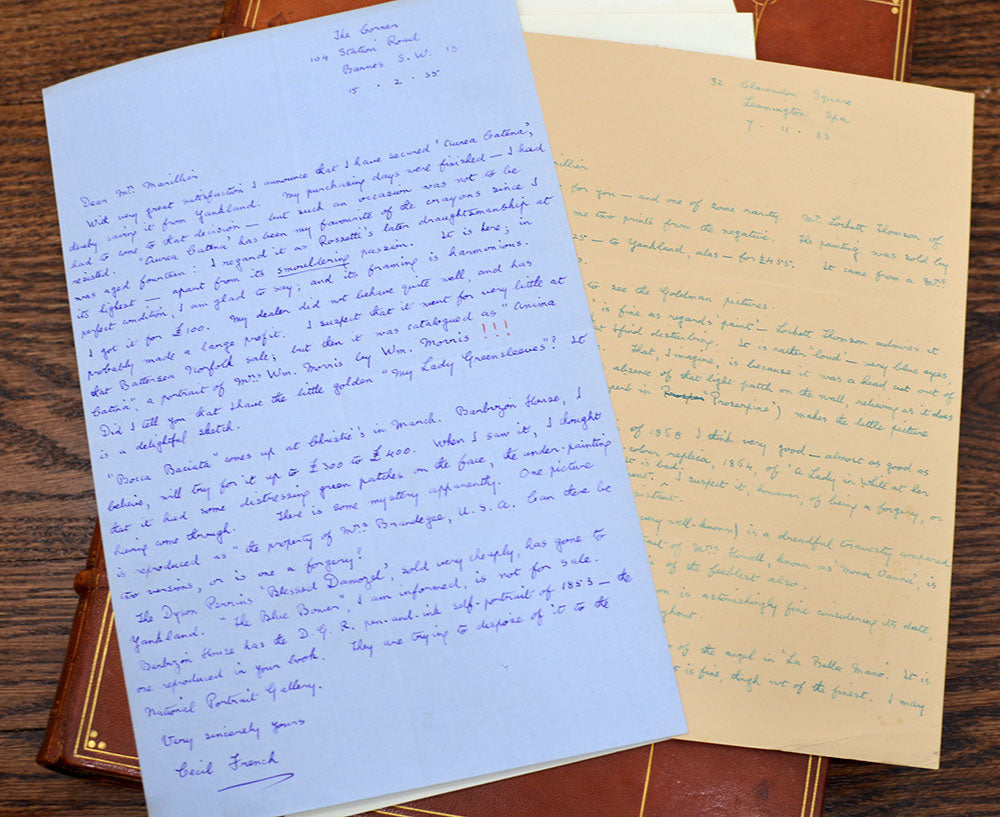 The Corner
104 Station Road
Barnes S.W. 13
15 . 2 . 35
Dear Mr. Marillier
With very great satisfaction I announce that I have secured "Aurea Catena",
thereby saving it from Yankland. My purchasing days were finished — I had
had to come to that decision — but such an occasion was not to be
resisted. "Aurea Catena" has been my favourite of the crayons since I
was aged fourteen: I regard it as Rossetti's later draughtsmanship at
its highest — apart from its smouldering passion. It is here; in
perfect condition, I am glad to say; and its framing is harmonious.
I got it for £100. My dealer did not behave quite well, and has
probably made a large profit. I suspect that it went for very little at
that Battersea Norfolk sale; but then it was catalogued as "Anima
Catina", a portrait of Mrs. Wm. Morris by Wm. Morris !!!
Did I tell you that I have the little golden "My Lady Greensleeves"? It
is a delightful sketch.
"Bocca Baciata" comes up at Christie's in March. Barbizon House, I
believe, will try for it up to £300 to £400. When I saw it, I thought
that it had some distressing green patches on the face, the under-painting
having come through. There is some mystery apparently. One picture
is reproduced as "the property of Mrs Brandegee, U.S.A. Can there be
two versions, or is one a forgery?
The Dyson Perrins "Blessed Damozel", sold very cheaply, has gone to
Yankland. "The Blue Bower", I am informed, is not for sale.
Barbizon House has the D.G.R. pen-and-ink self-portrait of 1853 — the
one reproduced in your book. They are trying to dispose of it to the
National Portrait Gallery.
Very sincerely yours
Cecil French
32 Clarendon Square
Leamington Spa
7 . 11 . 33
for you — and one of some rarity. Mr. Lockett Thomson of
me two prints from the negative. The painting was sold by
25 — to Yankland, alas — for £455. It came from a Mrs
to see the Goldman pictures.
is fine as regards 'paint' — Lockett Thomson admires it
I find disturbing. It is rather 'loud' — very blue eyes,
That, I imagine, is because it was a head cut out of
absence of that light patch on the wall, relieving as it does
"Proserpine") makes the little picture
of 1868 I think very good — almost as good as
colour replica, 1864, of "A Lady in White at her
it is bad;
I suspect it, however, of being a forgery, or
very well-known) is a dreadful travesty compared
of Mrs. Howell, known as "Monna Vanna", is
of the feeblest also.
is astonishingly fine considering its date,
of the angel in "La Bella Mano". It is
is fine, though not of the finest. I may